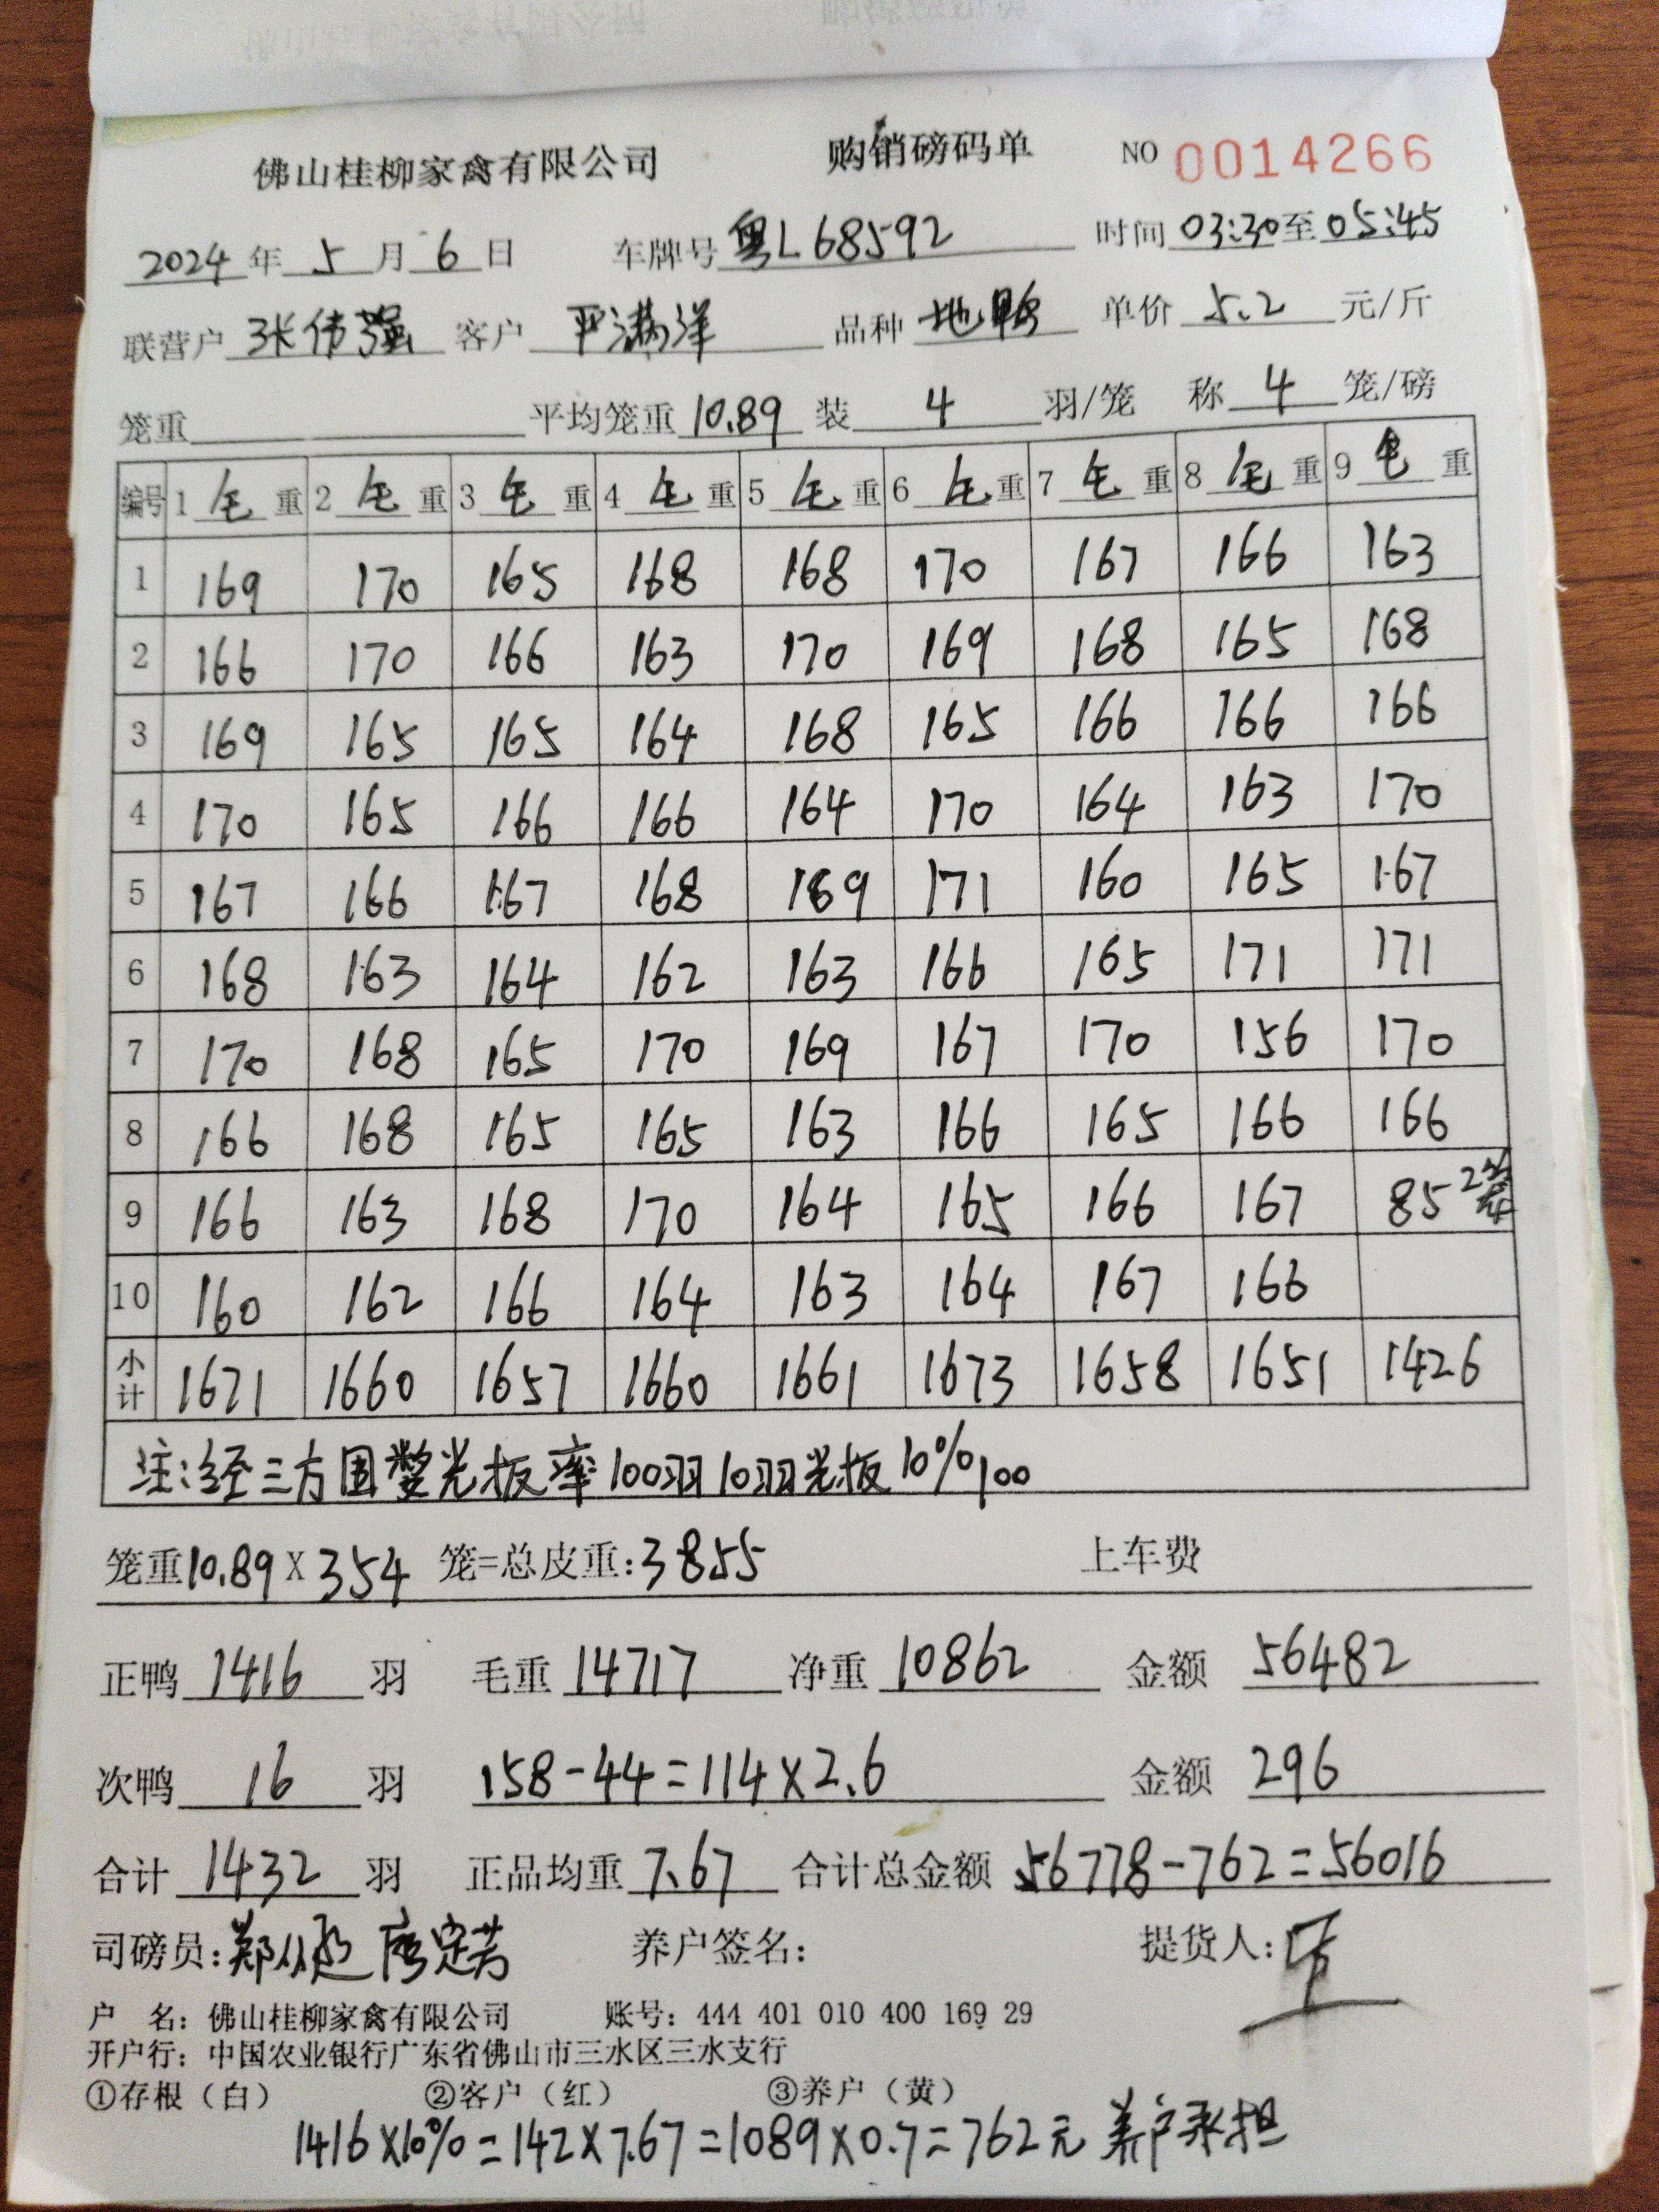 佛山桂柳家禽有限公司 购销磅码单 NO 0014266
2024年 5月 6日 车牌号 粤L68592 时间 03:30至05:45
联营户 张伟强 客户 严满洋 品种 地鸭 单价 5.2 元/斤
笼重 平均笼重 10.89 装 4 羽/笼 称 4 笼/磅
编号 1 毛重 2 毛重 3 毛重 4 毛重 5 毛重 6 毛重 7 毛重 8 毛重 9 毛重
1 169 170 165 168 168 170 167 166 163
2 166 170 166 163 170 169 168 165 168
3 169 165 165 164 168 165 166 166 166
4 170 165 166 166 164 170 164 163 170
5 167 166 167 168 169 171 160 165 167
6 168 163 164 162 163 166 165 171 171
7 170 168 165 170 169 167 170 156 170
8 166 168 165 165 163 166 165 166 166
9 166 163 168 170 164 165 166 167 85 2笼
10 160 162 166 164 163 164 167 166
小计 1671 1660 1657 1660 1661 1673 1658 1651 1426
注:经三方 光板率100羽10羽光板10%
笼重10.89×354 笼=总皮重:3855 上车费
正鸭 1416 羽 毛重 14717 净重 10862 金额 56482
次鸭 16 羽 158-44=114×2.6 金额 296
合计 1432 羽 正品均重 7.67 合计总金额 56778-762=56016
司磅员: 养户签名: 提货人:
户 名: 佛山桂柳家禽有限公司 账号: 444 401 010 400 169 29
开户行: 中国农业银行广东省佛山市三水区三水支行
①存根(白) ②客户(红) ③养户(黄)
1416×10%=142×7.67=1089×0.7=762元 养户承担